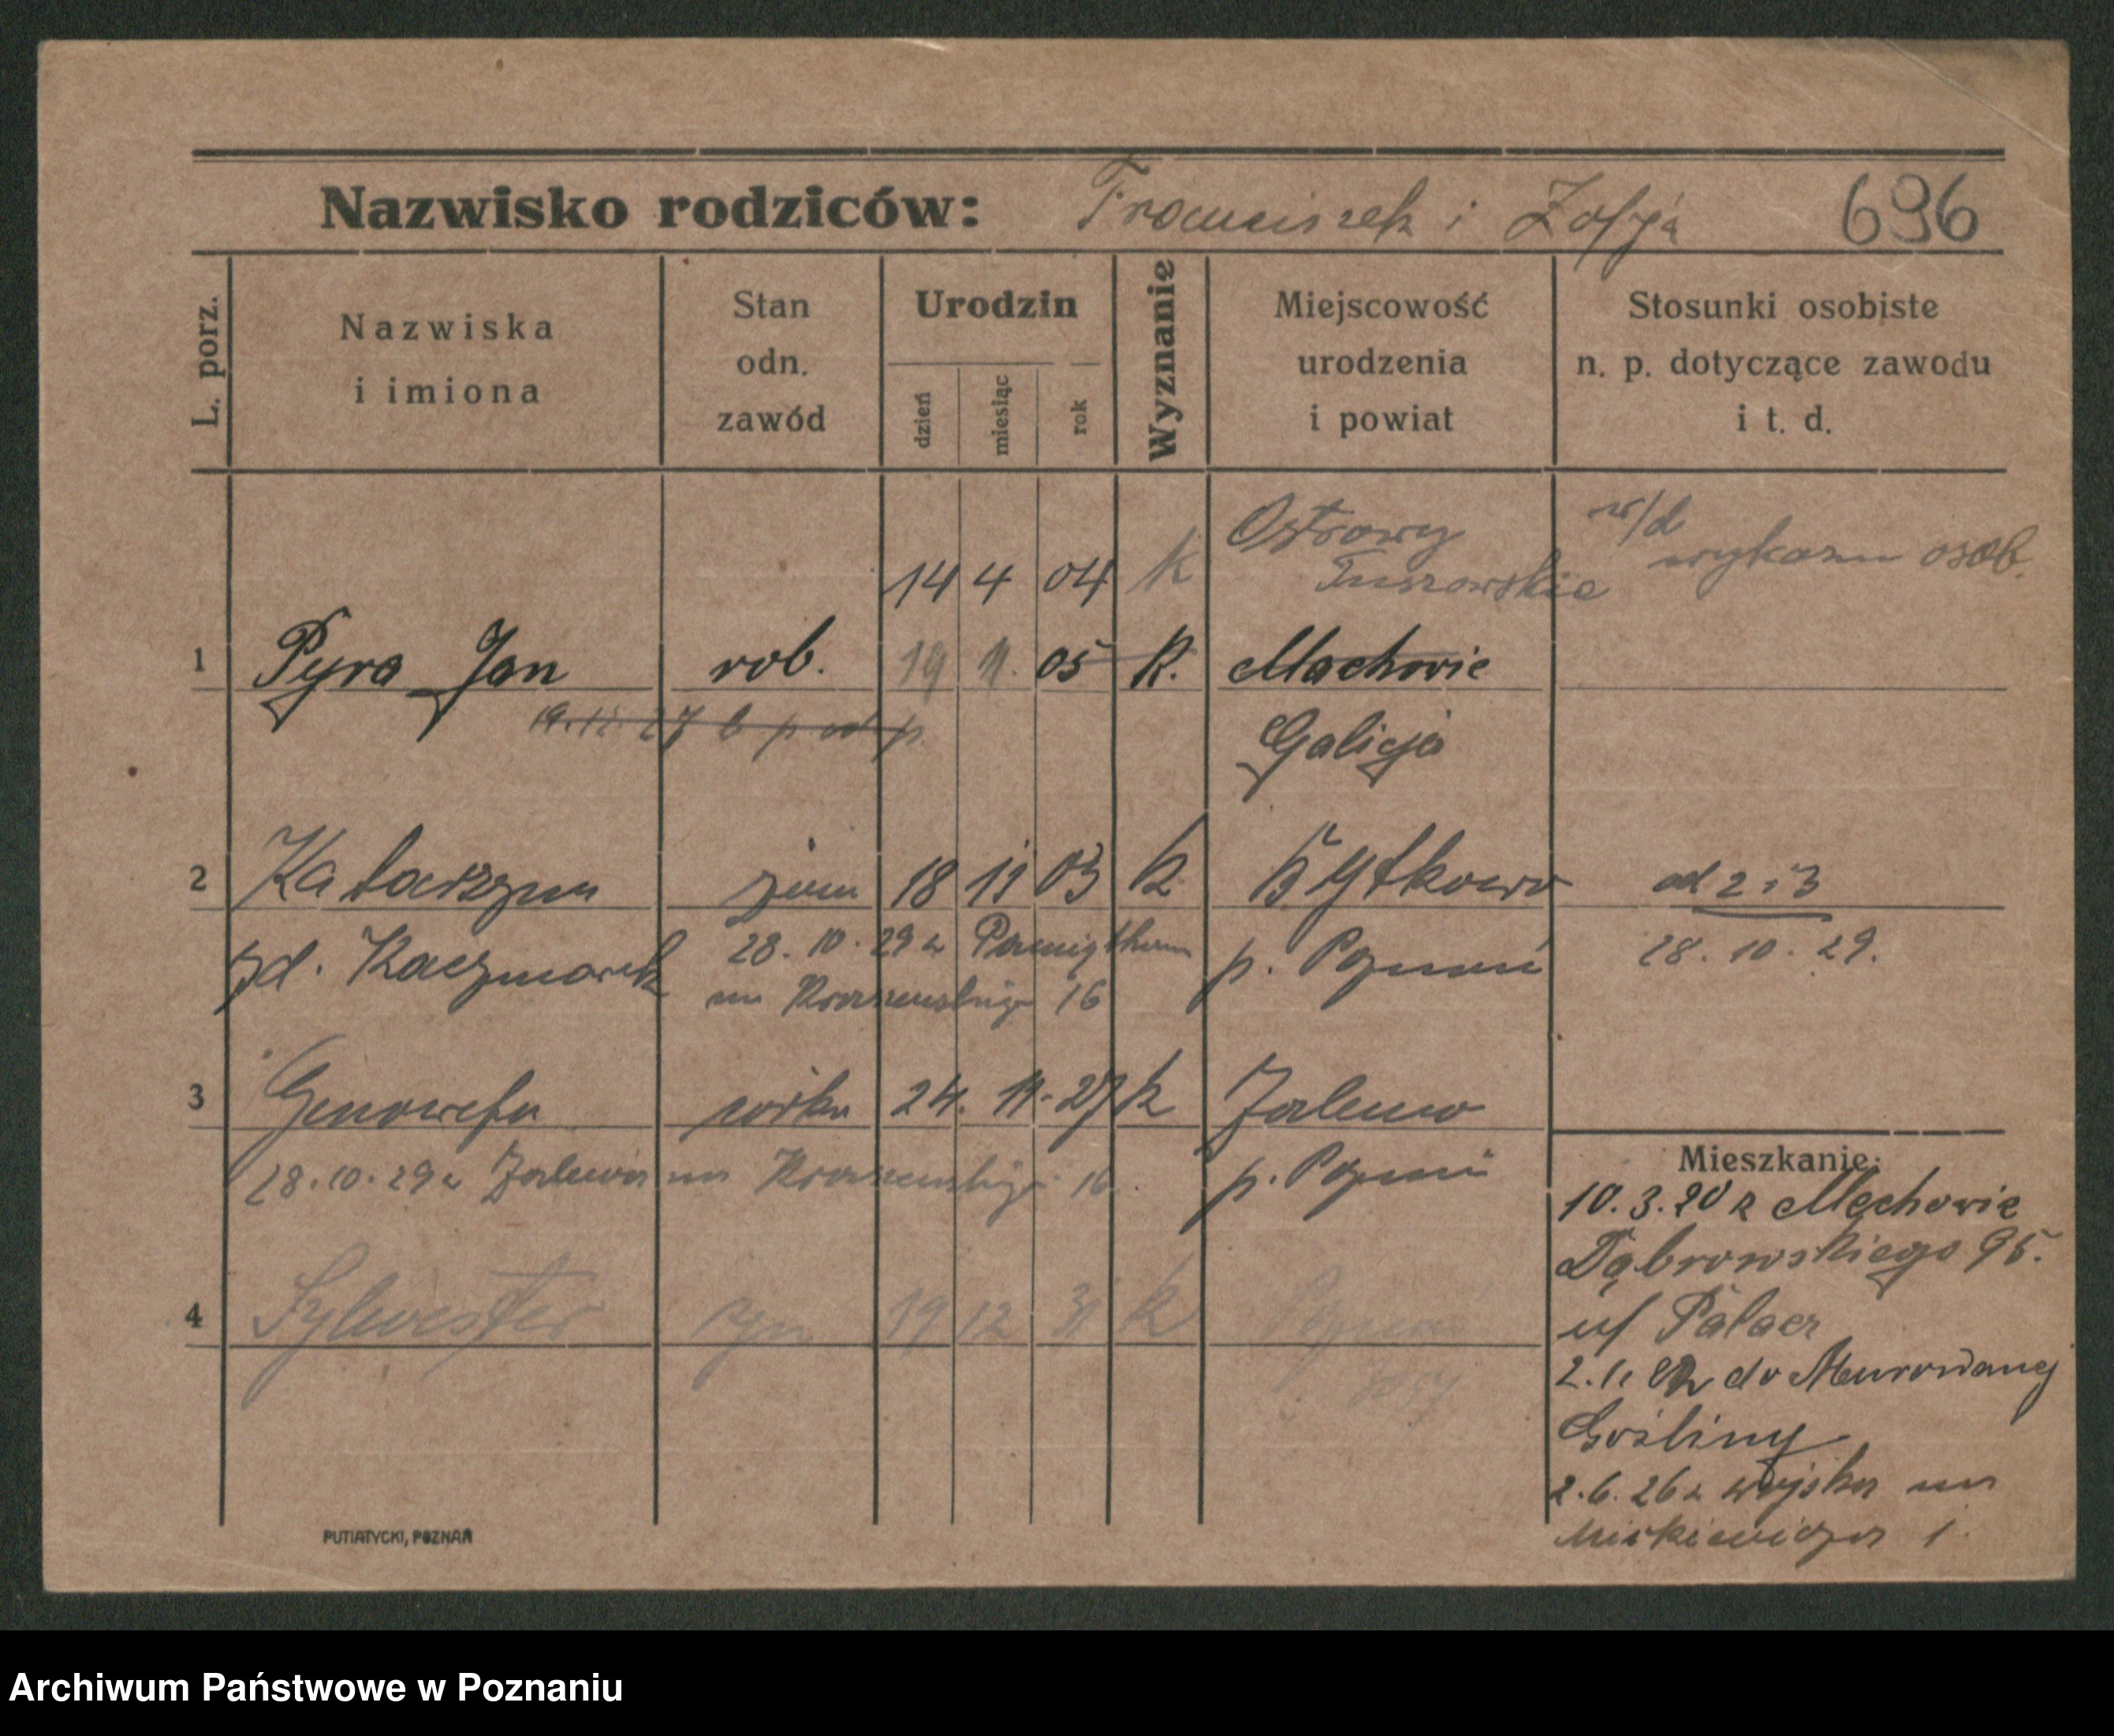 Nazwisko rodziców: Franciszek i Zofja 696
L. porz.
Nazwiska
i imiona
Stan
odn.
zawód
Urodzin
dzień
miesiąc
rok
Wyznanie
Miejscowość
urodzenia
i powiat
Stosunki osobiste
n. p. dotyczące zawodu
i t. d.
14 4 04 k Ostrowy w/d
Tuszowskie wykazu osob.
1 Pyra Jan rob. 19 11. 05 k. Machowie
19.11.27
Galicja
2 Katarzyna żona 18 11 03 k Żytkowo od 2 i 3
zd. Kaczmarek 28. 10. 29 z p. Poznań 28. 10. 29.
na Kraszewskiego 16
3 Genowefa córka 24. 11. 27 k Zalewo
28.10.29 z Zalewa na Kraszewskiego 16. p. Poznań
Mieszkanie:
10.3.20 z Mechowie
Dąbrowskiego 95.
u/ Palacz
4 Sylwester syn 19 12 31 k Poznań
2.1. do Murowanej
Gośliny
2.6.26 z wojska na
Mickiewicza 1.
PUTIATYCKI, POZNAŃ
Archiwum Państwowe w Poznaniu